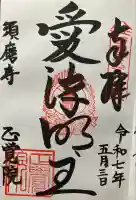 奉拝
令和七年
五月三日
愛染明王
須磨寺
正覚院